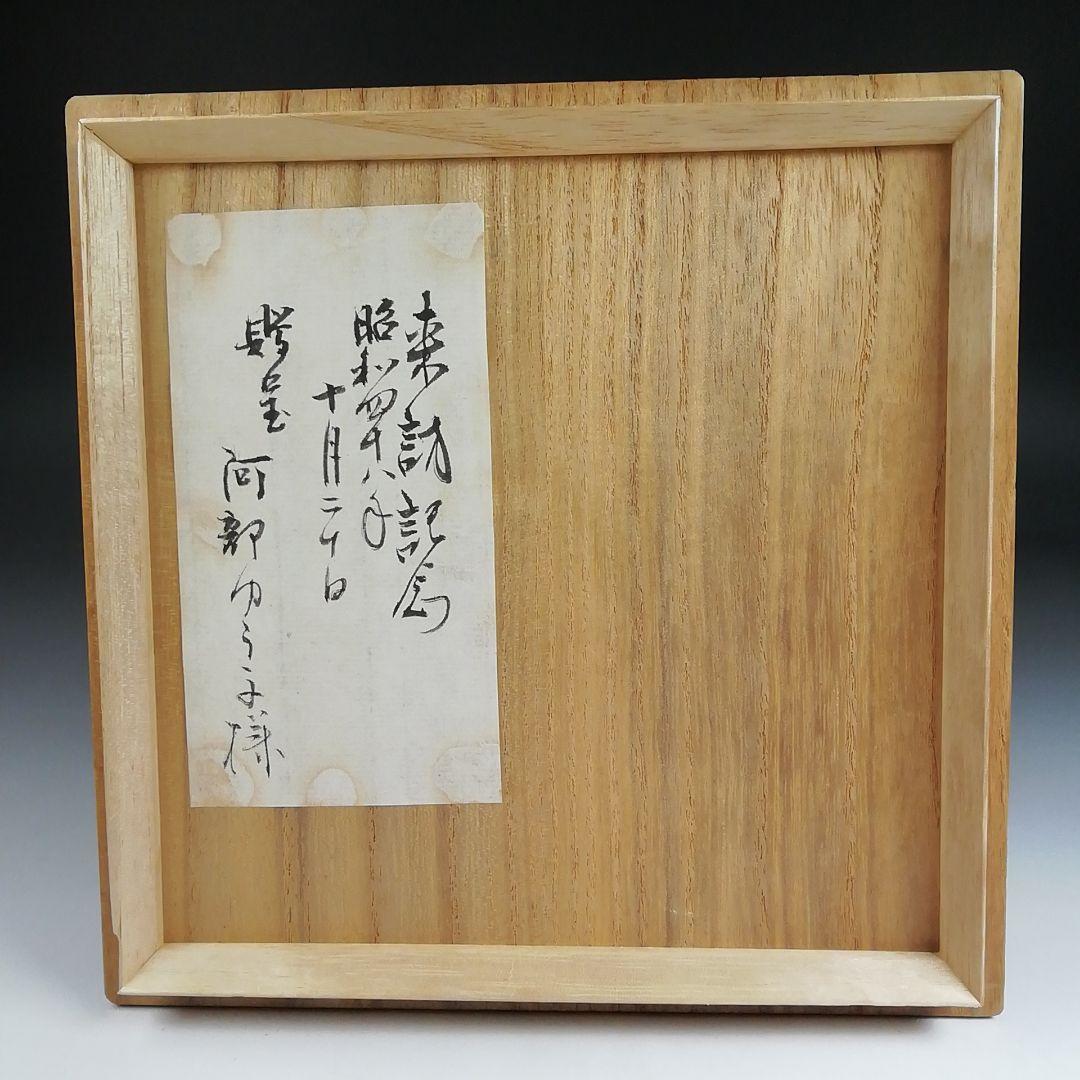 来訪記念
昭和四十八年
十月二十日
贈呈 阿部ゆう子様